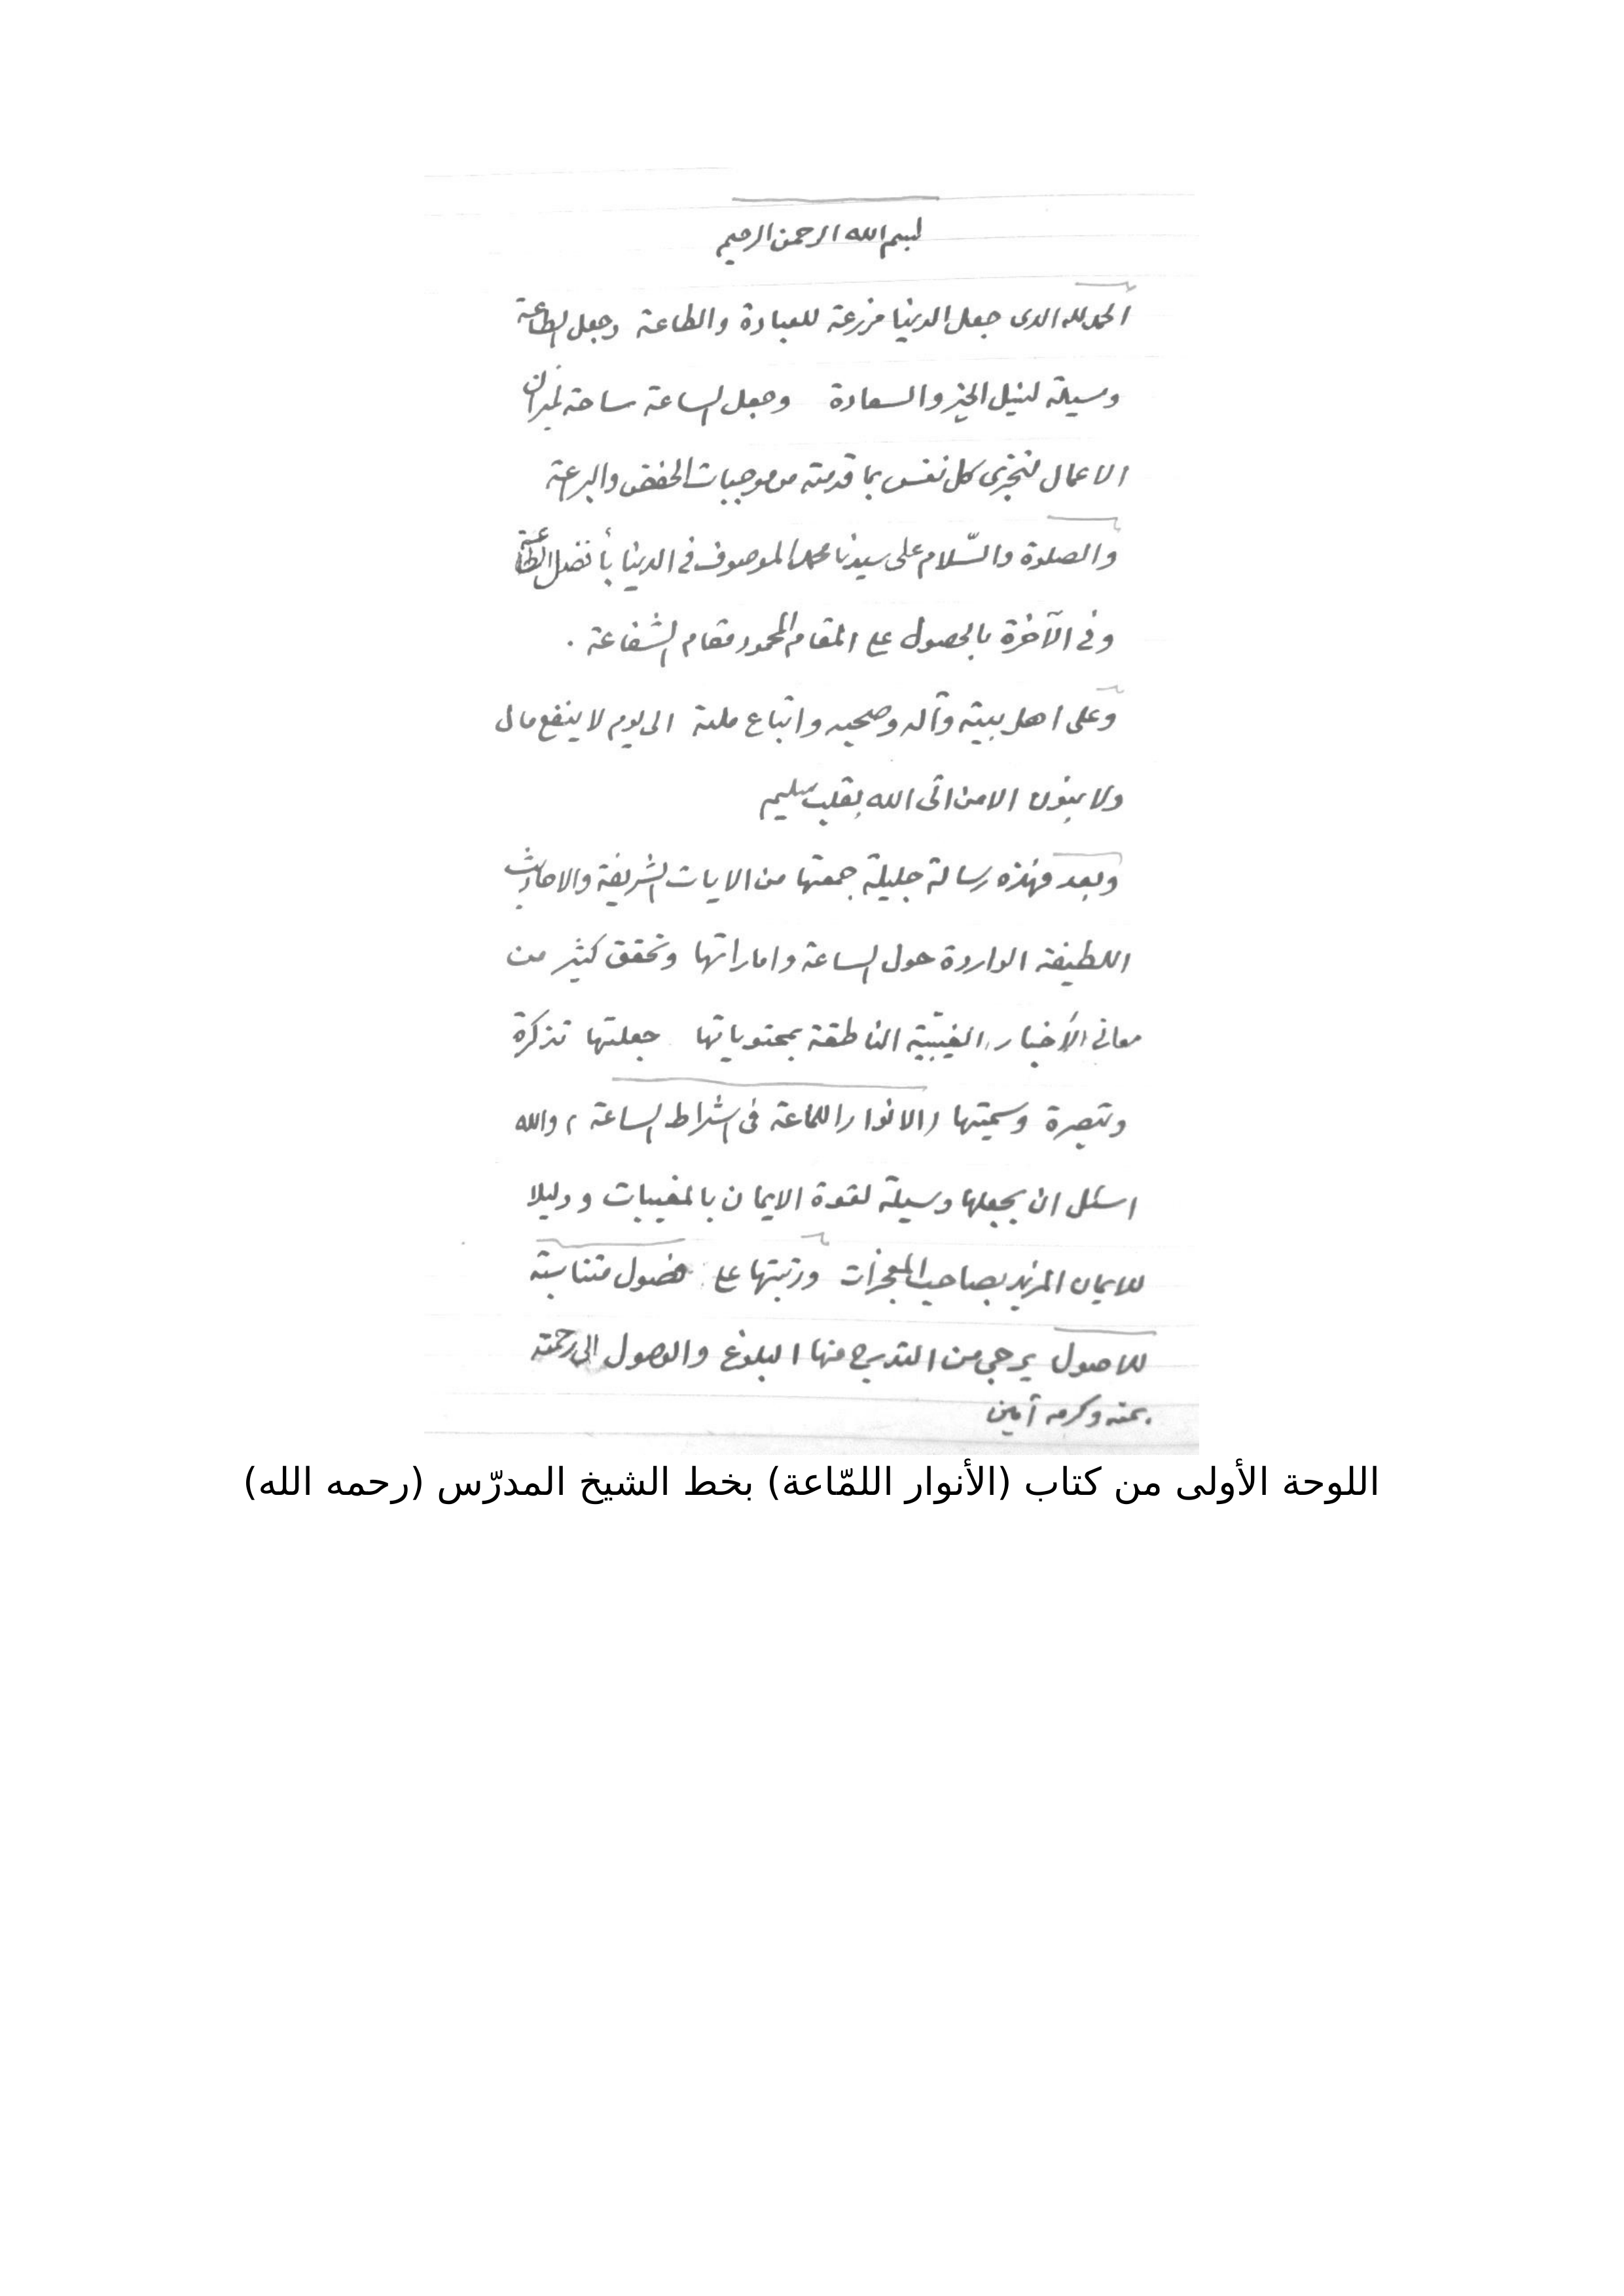 بسم الله الرحمن الرحيم
ألحمد لله الذى جعل الدينا مزرعة للعبادة والطاعة وجعل الطاعة
وسيلة لنيل الخير والسعادة وجعل الساعة ساحة لميزان
الاعمال لتجزى كل نفس بما قدمته من موجبات الخفض والبرعة
والصلوة والسّلام على سيدنا محمد الموصوف فى الدينا بأفضل الطاعة
وفى الآخرة بالحصول على المقام المحمود مقام الشفاعة .
وعلى اهل بيته وآله وصحبه واتباع ملته الى يوم لا ينفع مال
ولا بنون الا من اتى الله بقلب سليم
وبعد فهذه رسالة جليلة جمعتها من الايات الشريفة والاحاديث
اللطيفة الواردة حول الساعة واماراتها وتحقق كثير من
معانى الأخبار الغيبّية الناطقة بمحتوياتها جعلتها تذكرة
وتبصرة وسميتها (الانوار اللماعة فى اشراط الساعة) والله
اسئل ان يجعلها وسيلة لقوة الايمان بالمغيبات ودليلا
للايمان المزيد بصاحب المعجزات ورتبتها على فصول متناسبة
للاصول يرجى من التدرج منها البلوغ والوصول الى رحمته
بمنه وكرمه آمين
اللوحة الأولى من كتاب (الأنوار اللمّاعة) بخط الشيخ المدرّس (رحمه الله)